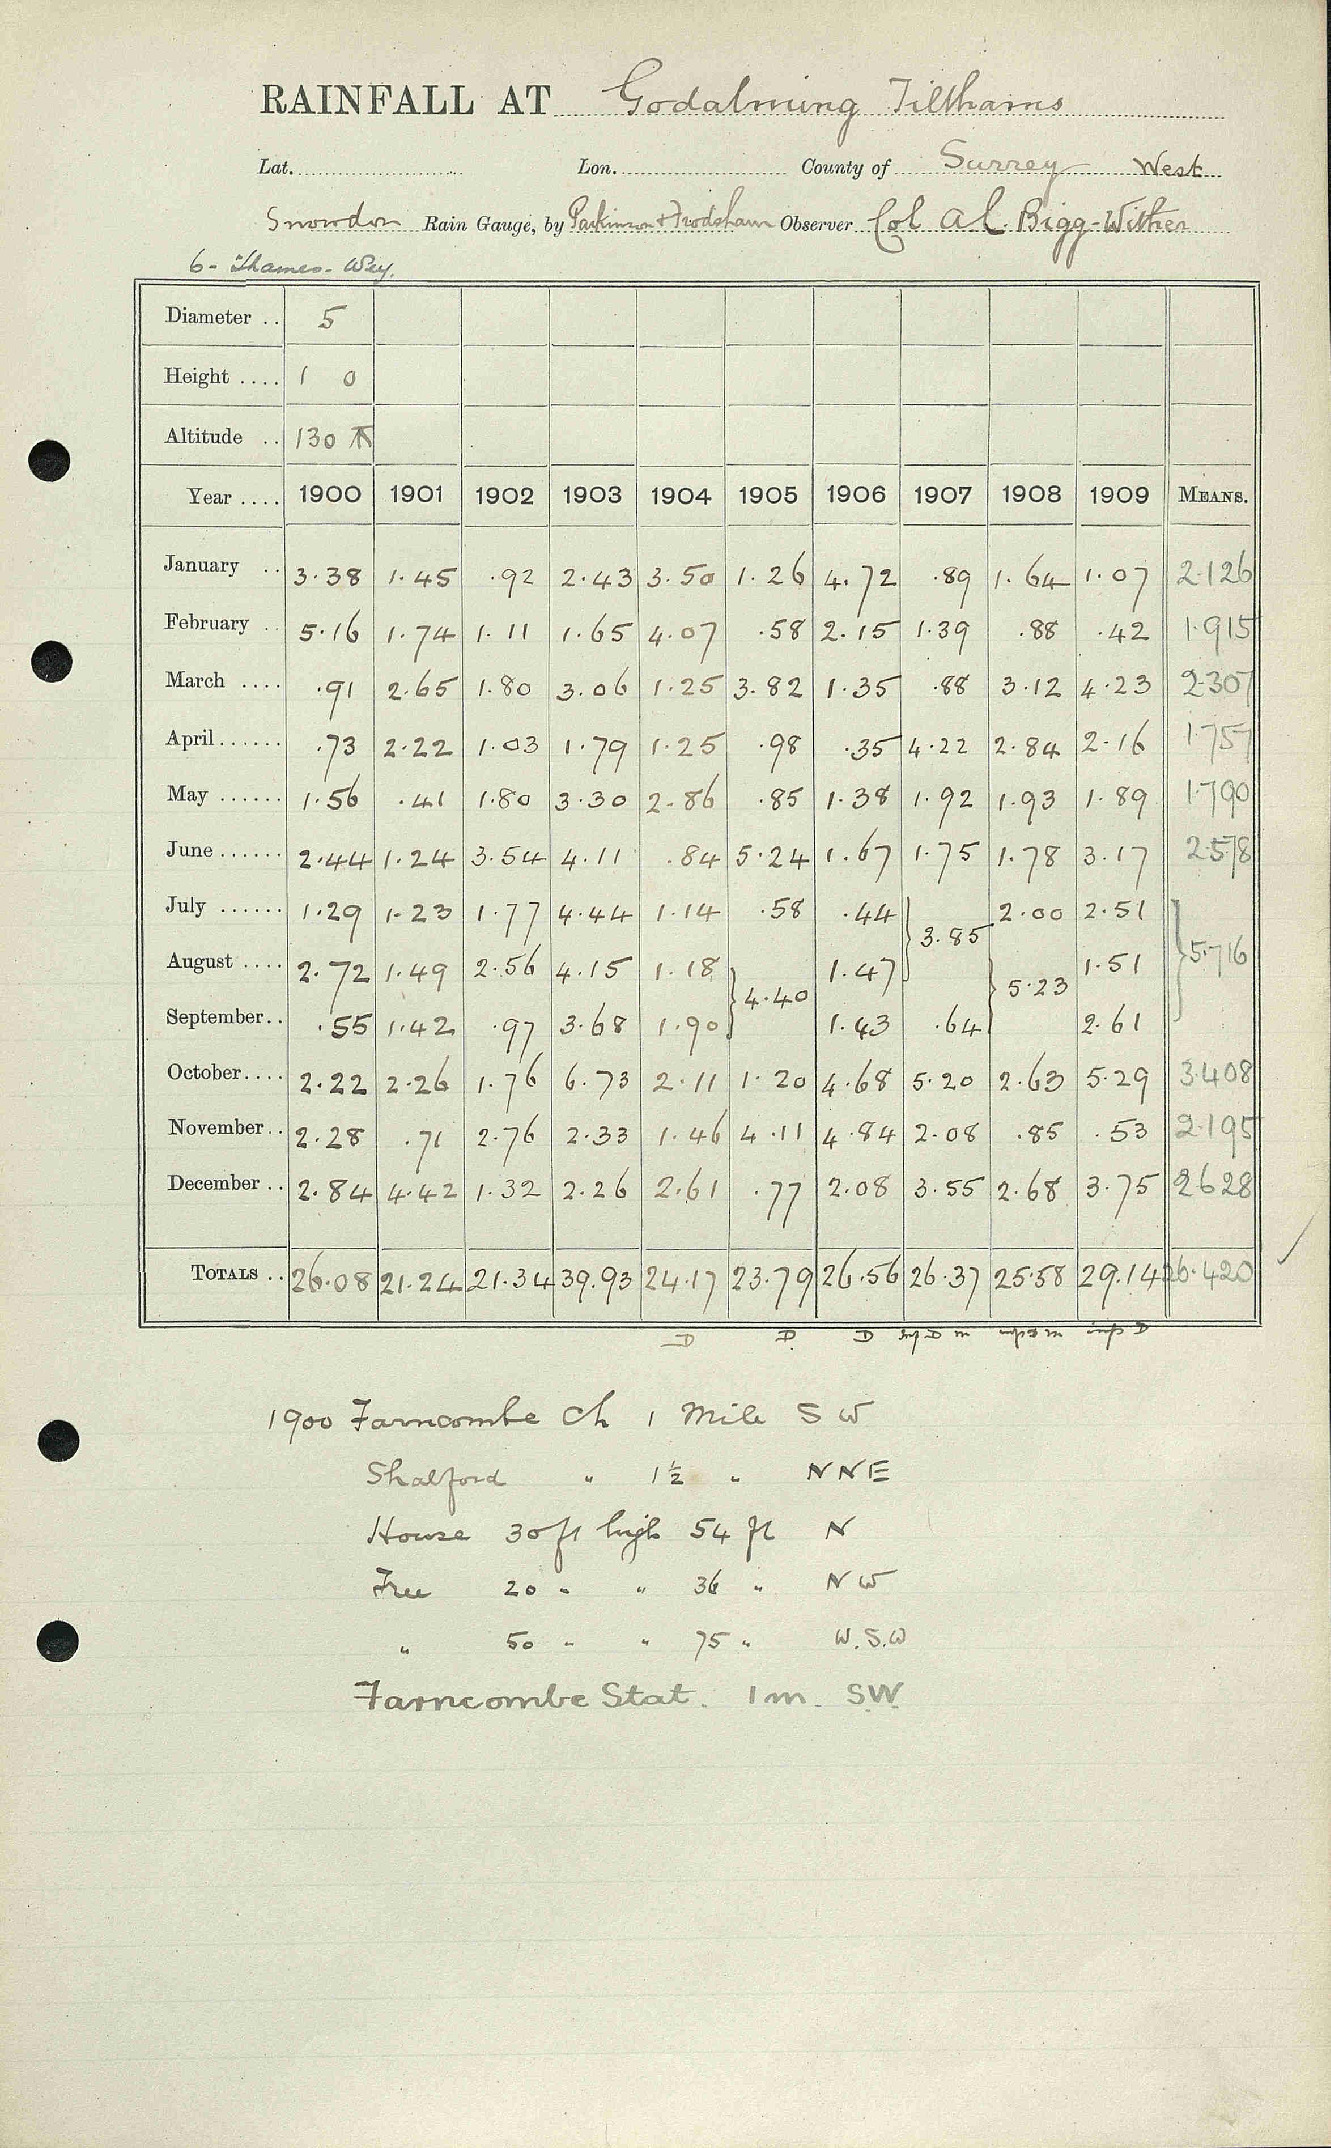 RAINFALL AT Godalming Tilthams
Lat. Lon. County of Surrey West
Snowdon Rain Gauge, by Parkinson & Frodsham Observer Col A C Bigg-Wither
6 - Thames - Wey.
Diameter .. 5
Height .... 1 0
Altitude .. 130
Year .... 1900 1901 1902 1903 1904 1905 1906 1907 1908 1909 MEANS.
January .. 3.38 1.45 .92 2.43 3.50 1.26 4.72 .89 1.64 1.07 2.126
February .. 5.16 1.74 1.11 1.65 4.07 .58 2.15 1.39 .88 .42 1.915
March .... .91 2.65 1.80 3.06 1.25 3.82 1.35 .88 3.12 4.23 2.307
April ...... .73 2.22 1.03 1.79 1.25 .98 .35 4.22 2.84 2.16 1.757
May ...... 1.56 .41 1.80 3.30 2.86 .85 1.38 1.92 1.93 1.89 1.790
June ...... 2.44 1.24 3.54 4.11 .84 5.24 1.67 1.75 1.78 3.17 2.578
July ...... 1.29 1.23 1.77 4.44 1.14 .58 .44 3.85 2.00 2.51 5.716
August .... 2.72 1.49 2.56 4.15 1.18 4.40 1.47 5.23 1.51
September.. .55 1.42 .97 3.68 1.90 1.43 .64 2.61
October.... 2.22 2.26 1.76 6.73 2.11 1.20 4.68 5.20 2.63 5.29 3.408
November.. 2.28 .71 2.76 2.33 1.46 4.11 4.84 2.08 .85 .53 2.195
December .. 2.84 4.42 1.32 2.26 2.61 .77 2.08 3.55 2.68 3.75 2628
TOTALS .. 26.08 21.24 21.34 39.93 24.17 23.79 26.56 26.37 25.58 29.14 26.420
D D. D
1900 Farncombe Ch 1 Mile S W
Shalford " 1½ " N N E
House 30 ft high 54 ft N
Tree 20 " " 36 " N W
" 50 " " 75 " W.S.W
Farncombe Stat. 1 m. S.W.